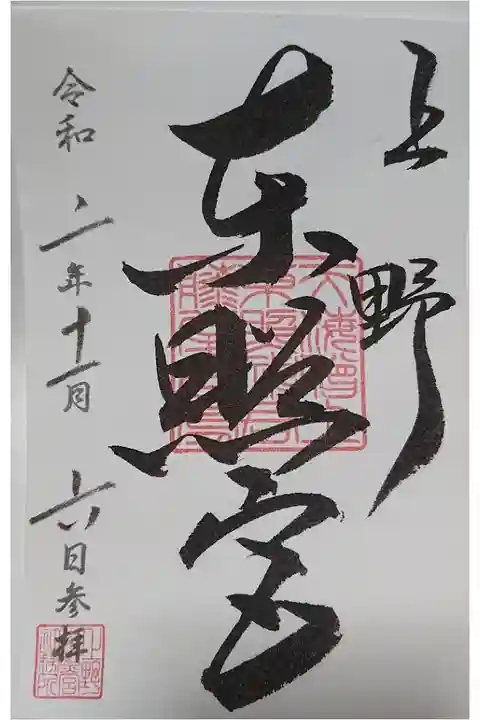 上野
東照宮
令和三年十一月十六日参拝